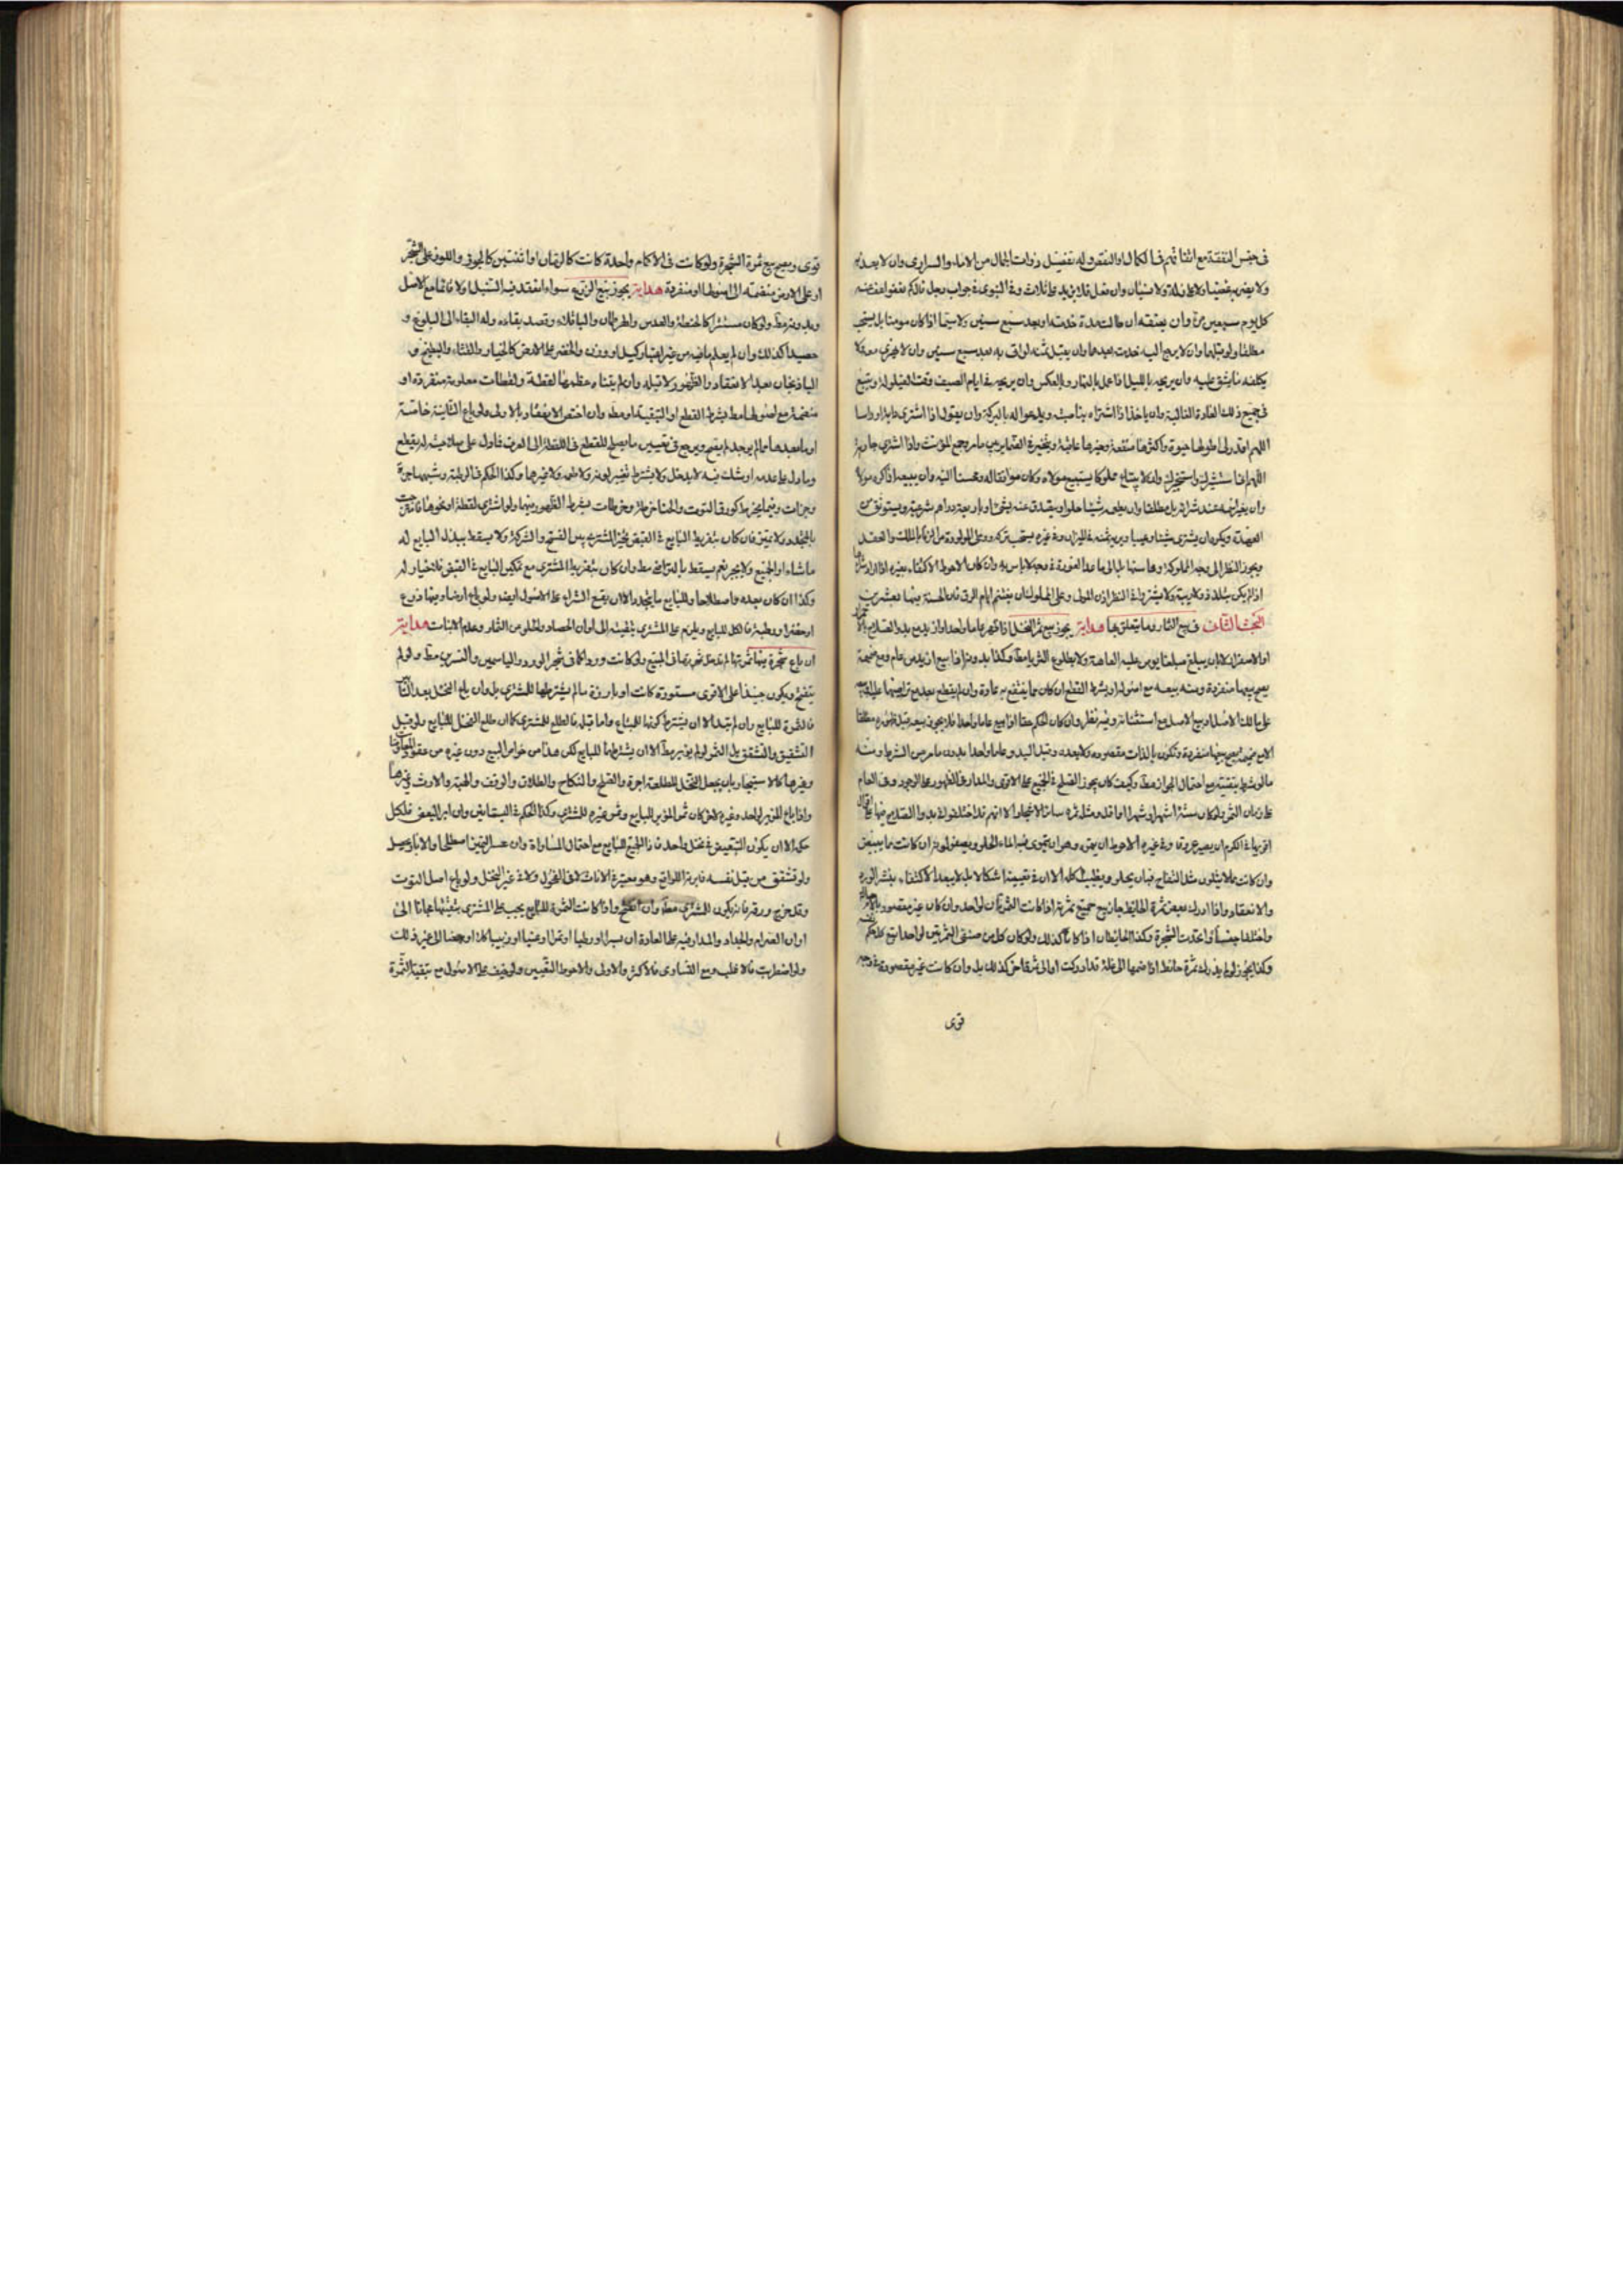 فى جنس النفقة مع اتفاقهم فى الكمال او النقص وله تفضيل ذوات الجمال من الاماء والسرارى وان لا يعذبه
ولا يضربه غضبا ولا على زلة ولا نسيان وان فعل فلا يزيد على ثلاث وفى النبوى فى جواب رجل نعفو عنه
كل يوم سبعين مرة وان يعتقه ان طالت مدة خدمته او بعد سبع سنين ولا سيما اذا كان مومنا بل يستحب
مطلقا ولو قبلها وان لا يرجع اليه خدمت بعدها وان يقبل ثمنه لو اتى به بعد سبع سنين وان لا
يكلفه ما يشق عليه وان يريحه بالليل اذا عمل بالنهار وبالعكس وان يريحه فى ايام الصيف وقت القيلولة ويتبع
فى جميع ذلك العادة الغالبة وان ياخذ اذا اشتراه بناصيته ويدعو له بالبركة وان يقول اذا اشترى دابة او راسا
اللهم اقدر لى اطولها حيوة واكثرها منفعة وخيرها عاقبة واذا اشترى جارية
اللهم انى استشيرك واستخيرك وان لا يبتاع مملوكا يستبيع مولاه وكان موافقا له ومحسنا اليه وان يبيعه اذا كره مولاه
وان يغير اسمه عند شرائه بل مطلقا وان يطعمه شيئا حلوا ويتصدق عنه بشىء او باربعة دراهم شرعية ويستوثق من
العهدة ويكره ان يشترى شيئا وعيبا ويريه ثمنه فى الميزان وفى غيره يستحب تركه ووطى المولودة من الزنا بالملك والعقد
ويجوز النظر الى وجه المملوكة ومحاسنها بل الى ما عدا العورة وجه لا باس به وان كان الاحوط الاكتفاء بغيره اذا اراد شرائها
اذا لم يكن بتلذذ ولا ريبة ولا يشترط فى النظر اذن المولى وعلى المملوك ان يغتنم ايام الرق فان الحسنة فيها بعشرين
البحث الثانى فى بيع الثمار وما يتعلق بها هداية يجوز بيع ثمر النخل اذا ظهر عاما واحدا او ازيد مع بدو الصلاح بالاحمرار
او الاصفرار لا بان يبلغ مبلغا يومن عليه العاهة ولا بطلوع الثريا مط وكذا بدونه اذا بيع ازيد من عام ومع ضميمة
يصح بيعها منفردة ومنه بيعه مع اصوله او بشرط القطع ان كان مما ينتفع به عادة وان لم يقطع بعد مع تراضيهما عليه
على مالك الاصل او بيع الاصل مع استثنائه وفيه نظر وان كان الحكم حقا اذا بيع عاما واحدا فلا يجوز بيعه قبل ظهوره مطلقا
الا مع ضميمة يصح بيعها منفردة وتكون بالذات مقصودة ولا بعده وقبل البدو عاما واحدا بدون ما مر من الشرط ومنه
ما لو شرط تبقيته مع احتمال الجواز مط وكيف كان يجوز الصلح فى الجميع على الاقوى والمدار فى الظهور على الوجود وفى العام
على زمان الثمر ولو كان ستة اشهر او شهرا او اقل ومثل ثمره سائر الاشجار الا انهم قد اختلفوا فى بدو الصلاح فيها على اقوال
اقربها فى الكرم ان يصير عروقا وفى غيره الاحوط ان يتموه وهو ان يجرى فيه الماء الحلو ويصفر لونه ان كانت مما يبيض
وان كانت مما لا يتلون مثل التفاح فبان يحلو ويطيب اكله الا ان فى تعميمه اشكالا بل لا يبعد الاكتفاء بنشر الورد
والانعقاد واذا ادرك بعض ثمرة الحائط جاز بيع جميع ثمرته اذا كانت الثمرتان لواحد وان كان غير مقصود بالاصالة
واختلفا جنسا او اتحدت الشجرة وكذا الحائطان اذا كانا كذلك ولو كان كل من صنفى الثمرتين لواحد اتبع كل حكم نفسه
وكذا يجوز لو لم يدرك ثمرة حائط اذا ضمها الى غلة قد ادركت او الى شىء اخر كذلك بل وان كانت غير مقصودة فى وجه
قوى
قوى ويصح بيع ثمرة الشجرة ولو كانت فى الاكمام واحدة كانت كالرمان او اثنتين كالجوز واللوز على الشجر
او على الارض منضمة الى اصولها او منفردة هداية يجوز بيع الزرع سواء انعقد فيه السنبل او لا قائما مع الاصل
وبدونه مط ولو كان مستترا كالحنطة والعدس والهرطمان والباقلاء وقصد بقاءه وله البقاء الى البلوغ و
حصيدا كذلك وان لم يعلم ما فيه من غير اعتبار كيل او وزن والخضر على الارض كالخيار والقثاء والبطيخ و
الباذنجان بعد الانعقاد والظهور ولا قبله وان لم يتناه عظمها لقطة ولقطات معلومة منفردة او
منضمة مع اصولها مط بشرط القطع او التبقية او مط وان اختص الانعقاد بالاولى ولو باع الثانية خاصة
او ما بعدها مما لم يوجد لم يصح ويرجع فى تعيين ما يصلح للقطع فى اللقطة الى العرف فما دل على صلاحيته له يقطع
وما دل على عدمه او شك فيه لا يدخل ولا يشترط تغيير لونه ولا طعمه ولا غيرها وكذا الحكم فى الرطبة وشبهها جزة
وجزات وفيما يخرط كورق التوت والحنا خرطة وخرطات بشرط الظهور فيهما ولو اشترى لقطة او نحوها فامتزجت
بالمتجدد ولا تمييز فان كان بتفريط البايع فى القبض تخير المشترى بين الفسخ والشركة ولا يسقط ببذل البايع له
ما شاء او الجميع ولا يجبر نعم يسقط بالتراضى مط وان كان بتفريط المشترى مع تمكين البايع فى القبض فلا خيار له
وكذا ان كان بعده واصطلاحا وللبايع ما يتجدد الا ان يقع الشراء على الاصول ايض ولو باع ارضا وفيها زرع
او خضرا ورطبة فالكل للبايع ويلزم على المشترى تبقيته الى اوان الحصاد والخلو من الثمار وعدم الانبات هداية
ان باع شجرة فيها ثمرتها لم تدخل ثمرتها فى المبيع ولو كانت وردا كما فى شجر الورد والياسمين والنسرين مط ولو لم
يتفتح ويكون جنبذا على الاقوى مستورة كانت او بارزة ما لم يشترطها للمشترى بل وان باع النخل بعد التابير
فالثمرة للبايع وان لم تبد الا ان يشترط كونها للمبتاع واما قبله فالطلع للمشترى كما ان طلع النخل للبايع ولو قبل
التشقيق والتشقق بدا الثمر او لم يؤبر مط الا ان يشترطها للبايع لكن هذا من خواص البيع دون غيره من عقود المعاوضات
وغيرها كالاستيجار بان يجعل النخل المطلعة اجرة والصلح والنكاح والطلاق والوقف والهبة والارث وغيرها
واذا باع المؤبر لواحد وغيره لاخر كان ثمر المؤبر للبايع وثمر غيره للمشترى وكذا الحكم فى البستانين وان ابر البعض فلكل
حكمه الا ان يكون التبعيض فى نخل واحد فان الجميع للبايع مع احتمال المساواة وان عسر التمييز اصطلحا والابار يحصل
ولو تشقق من قبل نفسه فابرته اللواقح وهو معتبر فى الاناث لا فى الفحول ولا فى غير النخل ولو باع اصل التوت
وقد خرج ورقه فانه يكون للمشترى مط وان انفتح واذا كانت الثمرة للبايع يجب على المشترى تبقيتها مجانا الى
اوان الصرام والجذاذ والمدار فيه على العادة ان بسرا او رطبا او تمرا وعنبا او زبيبا كذا او بعضا الى غير ذلك
ولو اضطربت فالاغلب ومع التساوى فالاكثر والاولى والاحوط التعيين ولو خيف على الاصول مع تبقية الثمرة